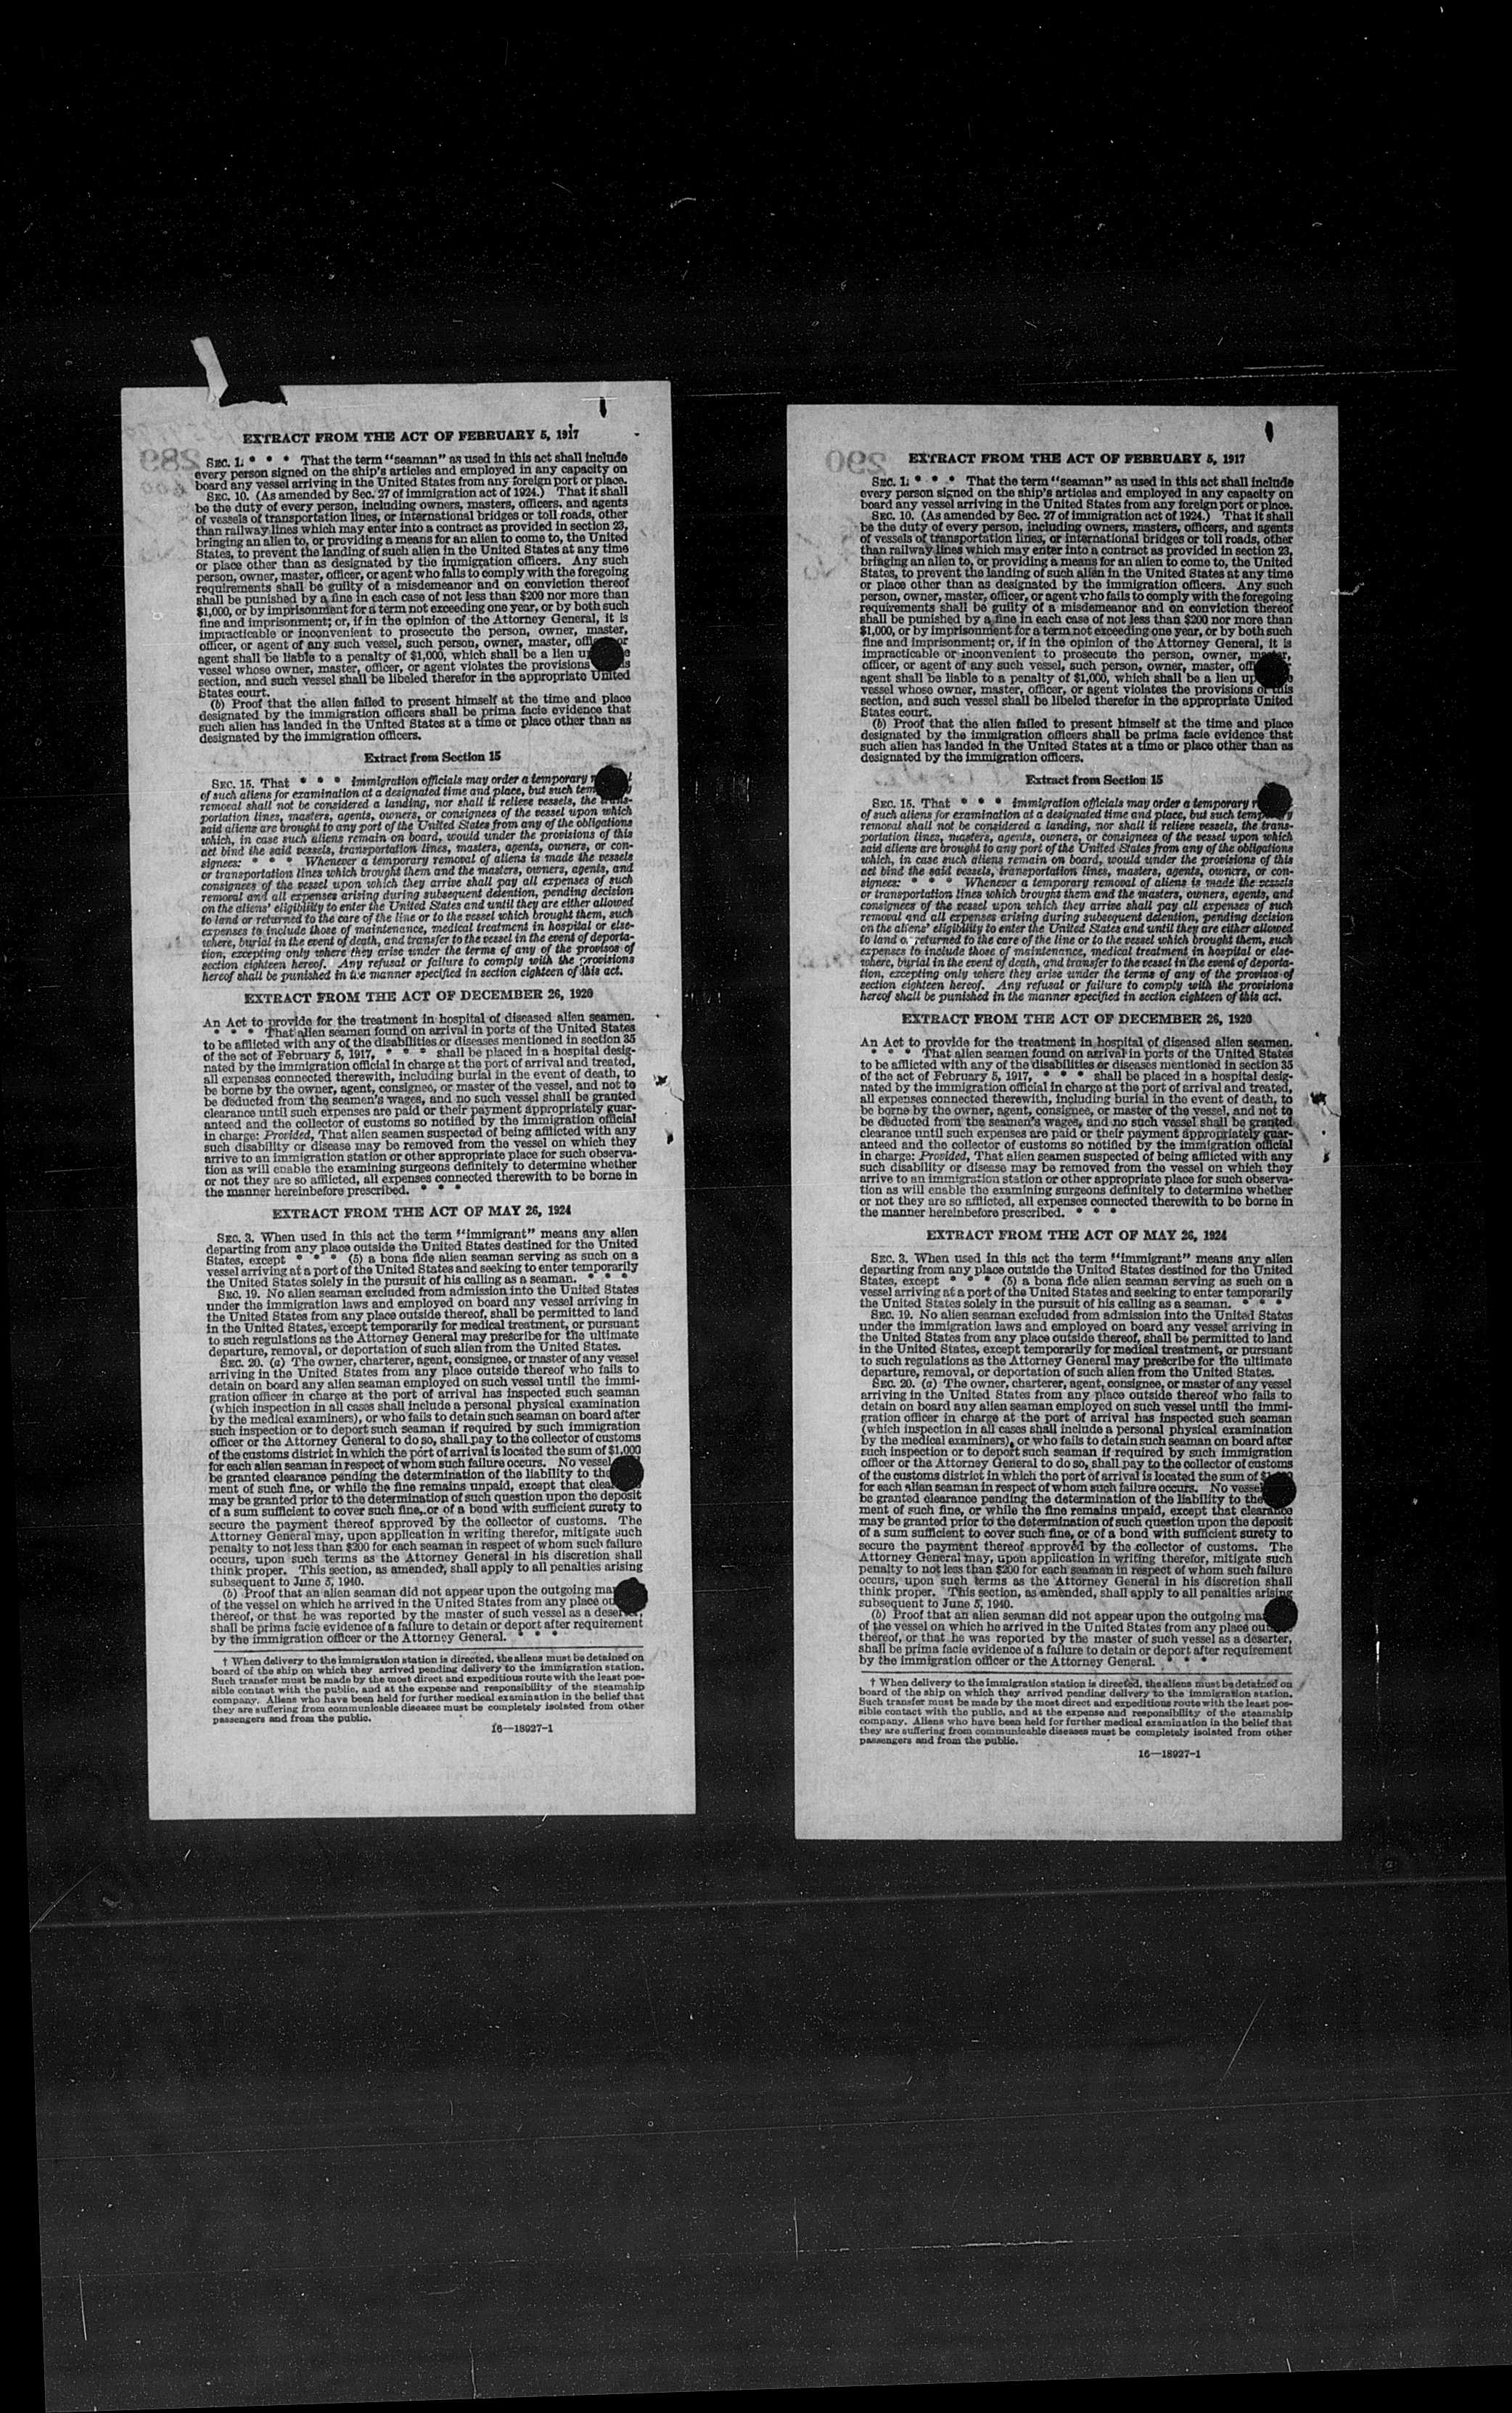 EXTRACT FROM THE ACT OF FEBRUARY 5, 1917
289
SEC. 1. * * * That the term "seaman" as used in this act shall include
every person signed on the ship's articles and employed in any capacity on
board any vessel arriving in the United States from any foreign port or place.
SEC. 10. (As amended by Sec. 27 of immigration act of 1924.) That it shall
be the duty of every person, including owners, masters, officers, and agents
of vessels of transportation lines, or international bridges or toll roads, other
than railway lines which may enter into a contract as provided in section 23,
bringing an alien to, or providing a means for an alien to come to, the United
States, to prevent the landing of such alien in the United States at any time
or place other than as designated by the immigration officers. Any such
person, owner, master, officer, or agent who fails to comply with the foregoing
requirements shall be guilty of a misdemeanor and on conviction thereof
shall be punished by a fine in each case of not less than $200 nor more than
$1,000, or by imprisonment for a term not exceeding one year, or by both such
fine and imprisonment; or, if in the opinion of the Attorney General, it is
impracticable or inconvenient to prosecute the person, owner, master,
officer, or agent of any such vessel, such person, owner, master, or
agent shall be liable to a penalty of $1,000, which shall be a lien
vessel whose owner, master, officer, or agent violates the provisions
section, and such vessel shall be libeled therefor in the appropriate United
States court.
(b) Proof that the alien failed to present himself at the time and place
designated by the immigration officers shall be prima facie evidence that
such alien has landed in the United States at a time or place other than as
designated by the immigration officers.
Extract from Section 15
SEC. 15. That * * * immigration officials may order a temporary
of such aliens for examination at a designated time and place, but such
removal shall not be considered a landing, nor shall it relieve vessels, the trans-
portation lines, masters, agents, owners, or consignees of the vessel upon which
said aliens are brought to any port of the United States from any of the obligations
which, in case such aliens remain on board, would under the provisions of this
act bind the said vessels, transportation lines, masters, agents, owners, or con-
signees: * * * Whenever a temporary removal of aliens is made the vessels
or transportation lines which brought them and the masters, owners, agents, and
consignees of the vessel upon which they arrive shall pay all expenses of such
removal and all expenses arising during subsequent detention, pending decision
on the aliens' eligibility to enter the United States and until they are either allowed
to land or returned to the care of the line or to the vessel which brought them, such
expenses to include those of maintenance, medical treatment in hospital or else-
where, burial in the event of death, and transfer to the vessel in the event of deporta-
tion, excepting only where they arise under the terms of any of the provisos of
section eighteen hereof. Any refusal or failure to comply with the provisions
hereof shall be punished in the manner specified in section eighteen of this act.
EXTRACT FROM THE ACT OF DECEMBER 26, 1920
An Act to provide for the treatment in hospital of diseased alien seamen.
* * * That alien seamen found on arrival in ports of the United States
to be afflicted with any of the disabilities or diseases mentioned in section 35
of the act of February 5, 1917, * * * shall be placed in a hospital desig-
nated by the immigration official in charge at the port of arrival and treated,
all expenses connected therewith, including burial in the event of death, to
be borne by the owner, agent, consignee, or master of the vessel, and not to
be deducted from the seamen's wages, and no such vessel shall be granted
clearance until such expenses are paid or their payment appropriately guar-
anteed and the collector of customs so notified by the immigration official
in charge: Provided, That alien seamen suspected of being afflicted with any
such disability or disease may be removed from the vessel on which they
arrive to an immigration station or other appropriate place for such observa-
tion as will enable the examining surgeons definitely to determine whether
or not they are so afflicted, all expenses connected therewith to be borne in
the manner hereinbefore prescribed. * * *
EXTRACT FROM THE ACT OF MAY 26, 1924
SEC. 3. When used in this act the term "immigrant" means any alien
departing from any place outside the United States destined for the United
States, except * * * (5) a bona fide alien seaman serving as such on a
vessel arriving at a port of the United States and seeking to enter temporarily
the United States solely in the pursuit of his calling as a seaman. * * *
SEC. 19. No alien seaman excluded from admission into the United States
under the immigration laws and employed on board any vessel arriving in
the United States from any place outside thereof, shall be permitted to land
in the United States, except temporarily for medical treatment, or pursuant
to such regulations as the Attorney General may prescribe for the ultimate
departure, removal, or deportation of such alien from the United States.
SEC. 20. (a) The owner, charterer, agent, consignee, or master of any vessel
arriving in the United States from any place outside thereof who fails to
detain on board any alien seaman employed on such vessel until the immi-
gration officer in charge at the port of arrival has inspected such seaman
(which inspection in all cases shall include a personal physical examination
by the medical examiners), or who fails to detain such seaman on board after
such inspection or to deport such seaman if required by such immigration
officer or the Attorney General to do so, shall pay to the collector of customs
of the customs district in which the port of arrival is located the sum of $1,000
for each alien seaman in respect of whom such failure occurs. No vessel
be granted clearance pending the determination of the liability to the
ment of such fine, or while the fine remains unpaid, except that
may be granted prior to the determination of such question upon the deposit
of a sum sufficient to cover such fine, or of a bond with sufficient surety to
secure the payment thereof approved by the collector of customs. The
Attorney General may, upon application in writing therefor, mitigate such
penalty to not less than $200 for each seaman in respect of whom such failure
occurs, upon such terms as the Attorney General in his discretion shall
think proper. This section, as amended, shall apply to all penalties arising
subsequent to June 5, 1940.
(b) Proof that an alien seaman did not appear upon the outgoing
of the vessel on which he arrived in the United States from any place
thereof, or that he was reported by the master of such vessel as a deserter,
shall be prima facie evidence of a failure to detain or deport after requirement
by the immigration officer or the Attorney General. * * *
† When delivery to the immigration station is directed, the aliens must be detained on
board of the ship on which they arrived pending delivery to the immigration station.
Such transfer must be made by the most direct and expeditious route with the least pos-
sible contact with the public, and at the expense and responsibility of the steamship
company. Aliens who have been held for further medical examination in the belief that
they are suffering from communicable diseases must be completely isolated from other
passengers and from the public.
16—18927-1
EXTRACT FROM THE ACT OF FEBRUARY 5, 1917
290
SEC. 1. * * * That the term "seaman" as used in this act shall include
every person signed on the ship's articles and employed in any capacity on
board any vessel arriving in the United States from any foreign port or place.
SEC. 10. (As amended by Sec. 27 of immigration act of 1924.) That it shall
be the duty of every person, including owners, masters, officers, and agents
of vessels of transportation lines, or international bridges or toll roads, other
than railway lines which may enter into a contract as provided in section 23,
bringing an alien to, or providing a means for an alien to come to, the United
States, to prevent the landing of such alien in the United States at any time
or place other than as designated by the immigration officers. Any such
person, owner, master, officer, or agent who fails to comply with the foregoing
requirements shall be guilty of a misdemeanor and on conviction thereof
shall be punished by a fine in each case of not less than $200 nor more than
$1,000, or by imprisonment for a term not exceeding one year, or by both such
fine and imprisonment; or, if in the opinion of the Attorney General, it is
impracticable or inconvenient to prosecute the person, owner, master,
officer, or agent of any such vessel, such person, owner, master,
agent shall be liable to a penalty of $1,000, which shall be a lien
vessel whose owner, master, officer, or agent violates the provisions of this
section, and such vessel shall be libeled therefor in the appropriate United
States court.
(b) Proof that the alien failed to present himself at the time and place
designated by the immigration officers shall be prima facie evidence that
such alien has landed in the United States at a time or place other than as
designated by the immigration officers.
Extract from Section 15
SEC. 15. That * * * immigration officials may order a temporary
of such aliens for examination at a designated time and place, but such temporary
removal shall not be considered a landing, nor shall it relieve vessels, the trans-
portation lines, masters, agents, owners, or consignees of the vessel upon which
said aliens are brought to any port of the United States from any of the obligations
which, in case such aliens remain on board, would under the provisions of this
act bind the said vessels, transportation lines, masters, agents, owners, or con-
signees: * * * Whenever a temporary removal of aliens is made the vessels
or transportation lines which brought them and the masters, owners, agents, and
consignees of the vessel upon which they arrive shall pay all expenses of such
removal and all expenses arising during subsequent detention, pending decision
on the aliens' eligibility to enter the United States and until they are either allowed
to land or returned to the care of the line or to the vessel which brought them, such
expenses to include those of maintenance, medical treatment in hospital or else-
where, burial in the event of death, and transfer to the vessel in the event of deporta-
tion, excepting only where they arise under the terms of any of the provisos of
section eighteen hereof. Any refusal or failure to comply with the provisions
hereof shall be punished in the manner specified in section eighteen of this act.
EXTRACT FROM THE ACT OF DECEMBER 26, 1920
An Act to provide for the treatment in hospital of diseased alien seamen.
* * * That alien seamen found on arrival in ports of the United States
to be afflicted with any of the disabilities or diseases mentioned in section 35
of the act of February 5, 1917, * * * shall be placed in a hospital desig-
nated by the immigration official in charge at the port of arrival and treated,
all expenses connected therewith, including burial in the event of death, to
be borne by the owner, agent, consignee, or master of the vessel, and not to
be deducted from the seamen's wages, and no such vessel shall be granted
clearance until such expenses are paid or their payment appropriately guar-
anteed and the collector of customs so notified by the immigration official
in charge: Provided, That alien seamen suspected of being afflicted with any
such disability or disease may be removed from the vessel on which they
arrive to an immigration station or other appropriate place for such observa-
tion as will enable the examining surgeons definitely to determine whether
or not they are so afflicted, all expenses connected therewith to be borne in
the manner hereinbefore prescribed. * * *
EXTRACT FROM THE ACT OF MAY 26, 1924
SEC. 3. When used in this act the term "immigrant" means any alien
departing from any place outside the United States destined for the United
States, except * * * (5) a bona fide alien seaman serving as such on a
vessel arriving at a port of the United States and seeking to enter temporarily
the United States solely in the pursuit of his calling as a seaman. * * *
SEC. 19. No alien seaman excluded from admission into the United States
under the immigration laws and employed on board any vessel arriving in
the United States from any place outside thereof, shall be permitted to land
in the United States, except temporarily for medical treatment, or pursuant
to such regulations as the Attorney General may prescribe for the ultimate
departure, removal, or deportation of such alien from the United States.
SEC. 20. (a) The owner, charterer, agent, consignee, or master of any vessel
arriving in the United States from any place outside thereof who fails to
detain on board any alien seaman employed on such vessel until the immi-
gration officer in charge at the port of arrival has inspected such seaman
(which inspection in all cases shall include a personal physical examination
by the medical examiners), or who fails to detain such seaman on board after
such inspection or to deport such seaman if required by such immigration
officer or the Attorney General to do so, shall pay to the collector of customs
of the customs district in which the port of arrival is located the sum of
for each alien seaman in respect of whom such failure occurs. No vessel
be granted clearance pending the determination of the liability to the
ment of such fine, or while the fine remains unpaid, except that clearance
may be granted prior to the determination of such question upon the deposit
of a sum sufficient to cover such fine, or of a bond with sufficient surety to
secure the payment thereof approved by the collector of customs. The
Attorney General may, upon application in writing therefor, mitigate such
penalty to not less than $200 for each seaman in respect of whom such failure
occurs, upon such terms as the Attorney General in his discretion shall
think proper. This section, as amended, shall apply to all penalties arising
subsequent to June 5, 1940.
(b) Proof that an alien seaman did not appear upon the outgoing
of the vessel on which he arrived in the United States from any place
thereof, or that he was reported by the master of such vessel as a deserter,
shall be prima facie evidence of a failure to detain or deport after requirement
by the immigration officer or the Attorney General. * * *
† When delivery to the immigration station is directed, the aliens must be detained on
board of the ship on which they arrived pending delivery to the immigration station.
Such transfer must be made by the most direct and expeditious route with the least pos-
sible contact with the public, and at the expense and responsibility of the steamship
company. Aliens who have been held for further medical examination in the belief that
they are suffering from communicable diseases must be completely isolated from other
passengers and from the public.
16—18927-1